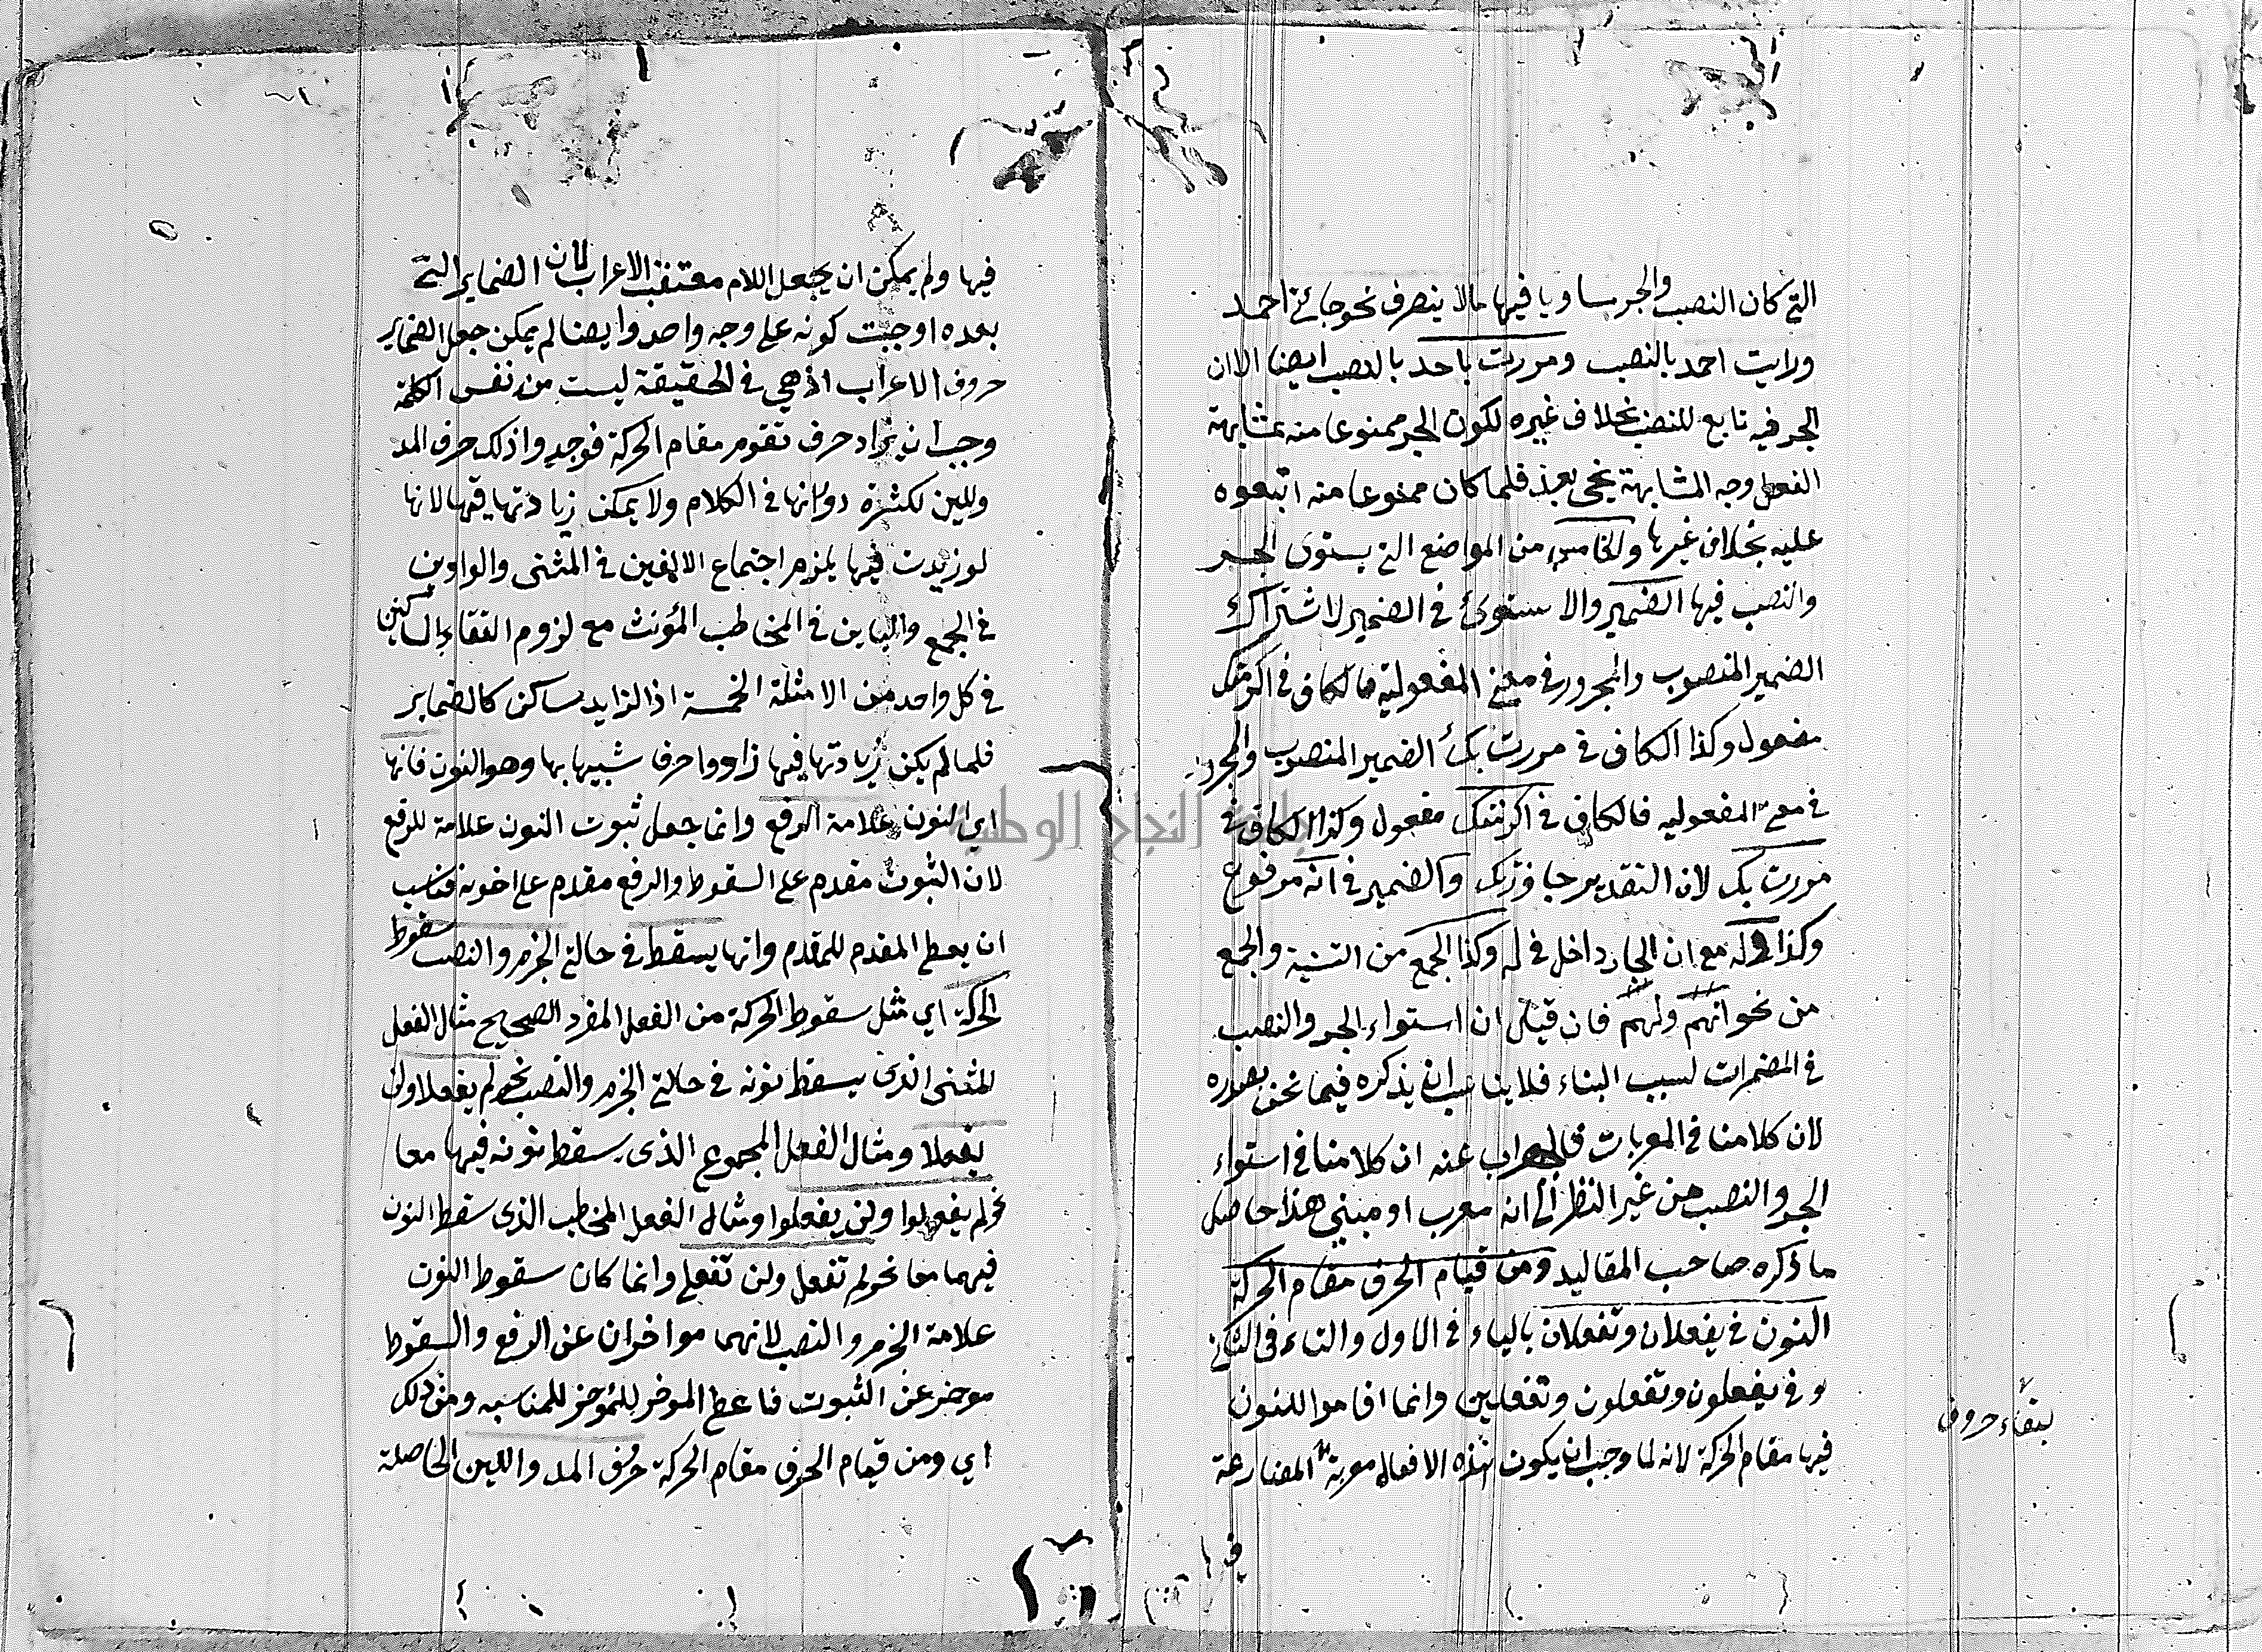 التي كان النصب والجر ساويا فيها مالا ينصرف نحو جائني احمد
ورايت احمد بالنصب ومررت باحمد بالنصب ايضا الا ان
الجر فيه تابع للنصب بخلاف غيره لكون الجر ممنوعا منه بمشابهة
الفعل وجه المشابهة يجي بعد فلما كان ممنوعا منه اتبعوه
عليه بخلاف غيرها والخامس من المواضع التي يستوى الجر
والنصب فيها الضمير والاستوى في الضمير لاشتراك
الضمير المنصوب والمجرور في معنى المفعولية فالكاف في اكرمتك
مفعول وكذا الكاف في مررت بك الضمير المنصوب والمجرور
في معنى المفعوليه فالكاف في اكرمتك مفعول وكذا الكاف في
مررت بك لان التقدير جاوزتك والضمير في انه مرفوع
وكذا في له مع ان الجار داخل في له وكذا الجمع من التثنية والجمع
من نحو انهم ولهم فان قيل ان استواء الجر والنصب
في المضمرات لسبب البناء فلا يناسب ان يذكره فيما نحن بصدده
لان كلامنا في المعربات فالجواب عنه ان كلامنا في استواء
الجر والنصب من غير النظر الى انه معرب او مبني هذا حاصل
ما ذكره صاحب المقاليد ومن قيام الحرف مقام الحركة
النون في يفعلان وتفعلان بالياء في الاول والتاء في الثاني
و في يفعلون وتفعلون وتفعلين وانما اقاموا النون
فيها مقام الحركة لانه لما وجب ان يكون هذه الافعال معربة المضارعة
لبقاء حروف
فيها
فيها ولم يمكن ان يجعل اللام معتقب الاعراب لان الضماير التي
بعده اوجبت كونه على وجه واحد وايضا لم يمكن جعل الضماير
حروف الاعراب اذ هي في الحقيقة ليست من نفس الكلمة
وجب ان يزاد حرف تقوم مقام الحركة فوجدوا ذلك حرف المد
وللين لكثرة دورانها في الكلام ولا يمكن زيادتها فيها لانها
لو زيدت فيها يلزم اجتماع الالفين في المثنى والواوين
في الجمع والياين في المخاطب المؤنث مع لزوم التقاء الساكنين
في كل واحد من الامثلة الخمسة اذ الزايد ساكن كالضماير
فلما لم يكن زيادتها فيها زادوا حرفا شبيها بها وهو النون فانها
اي النون علامة الرفع وانما جعل ثبوت النون علامة للرفع
لان الثبوت مقدم على السقوط والرفع مقدم على اخوته فناسب
ان يعطى المقدم للمقدم وانها يسقط في حالة الجزم والنصب سقوط
الحركة اي مثل سقوط الحركة من الفعل المفرد الصحيح مثال الفعل
المثنى الذى يسقط نونه في حالة الجزم والنصب نحو لم يفعلا ولن
يفعلا ومثال الفعل المجموع الذى يسقط نونه فيها معا
نحو لم يفعلوا ولن يفعلوا ومثال الفعل المخاطب الذى سقط النون
فيهما معا نحو لم تفعل ولن تفعلي وانما كان سقوط النون
علامة الجزم والنصب لانهما مواخران عن الرفع والسقوط
موخر عن الثبوت فاعطى الموخر للمؤخر للمناسبه ومن ذلك
اي ومن قيام الحرف مقام الحركة حرف المد واللين الحاصلة
جامعة النجاح الوطنية